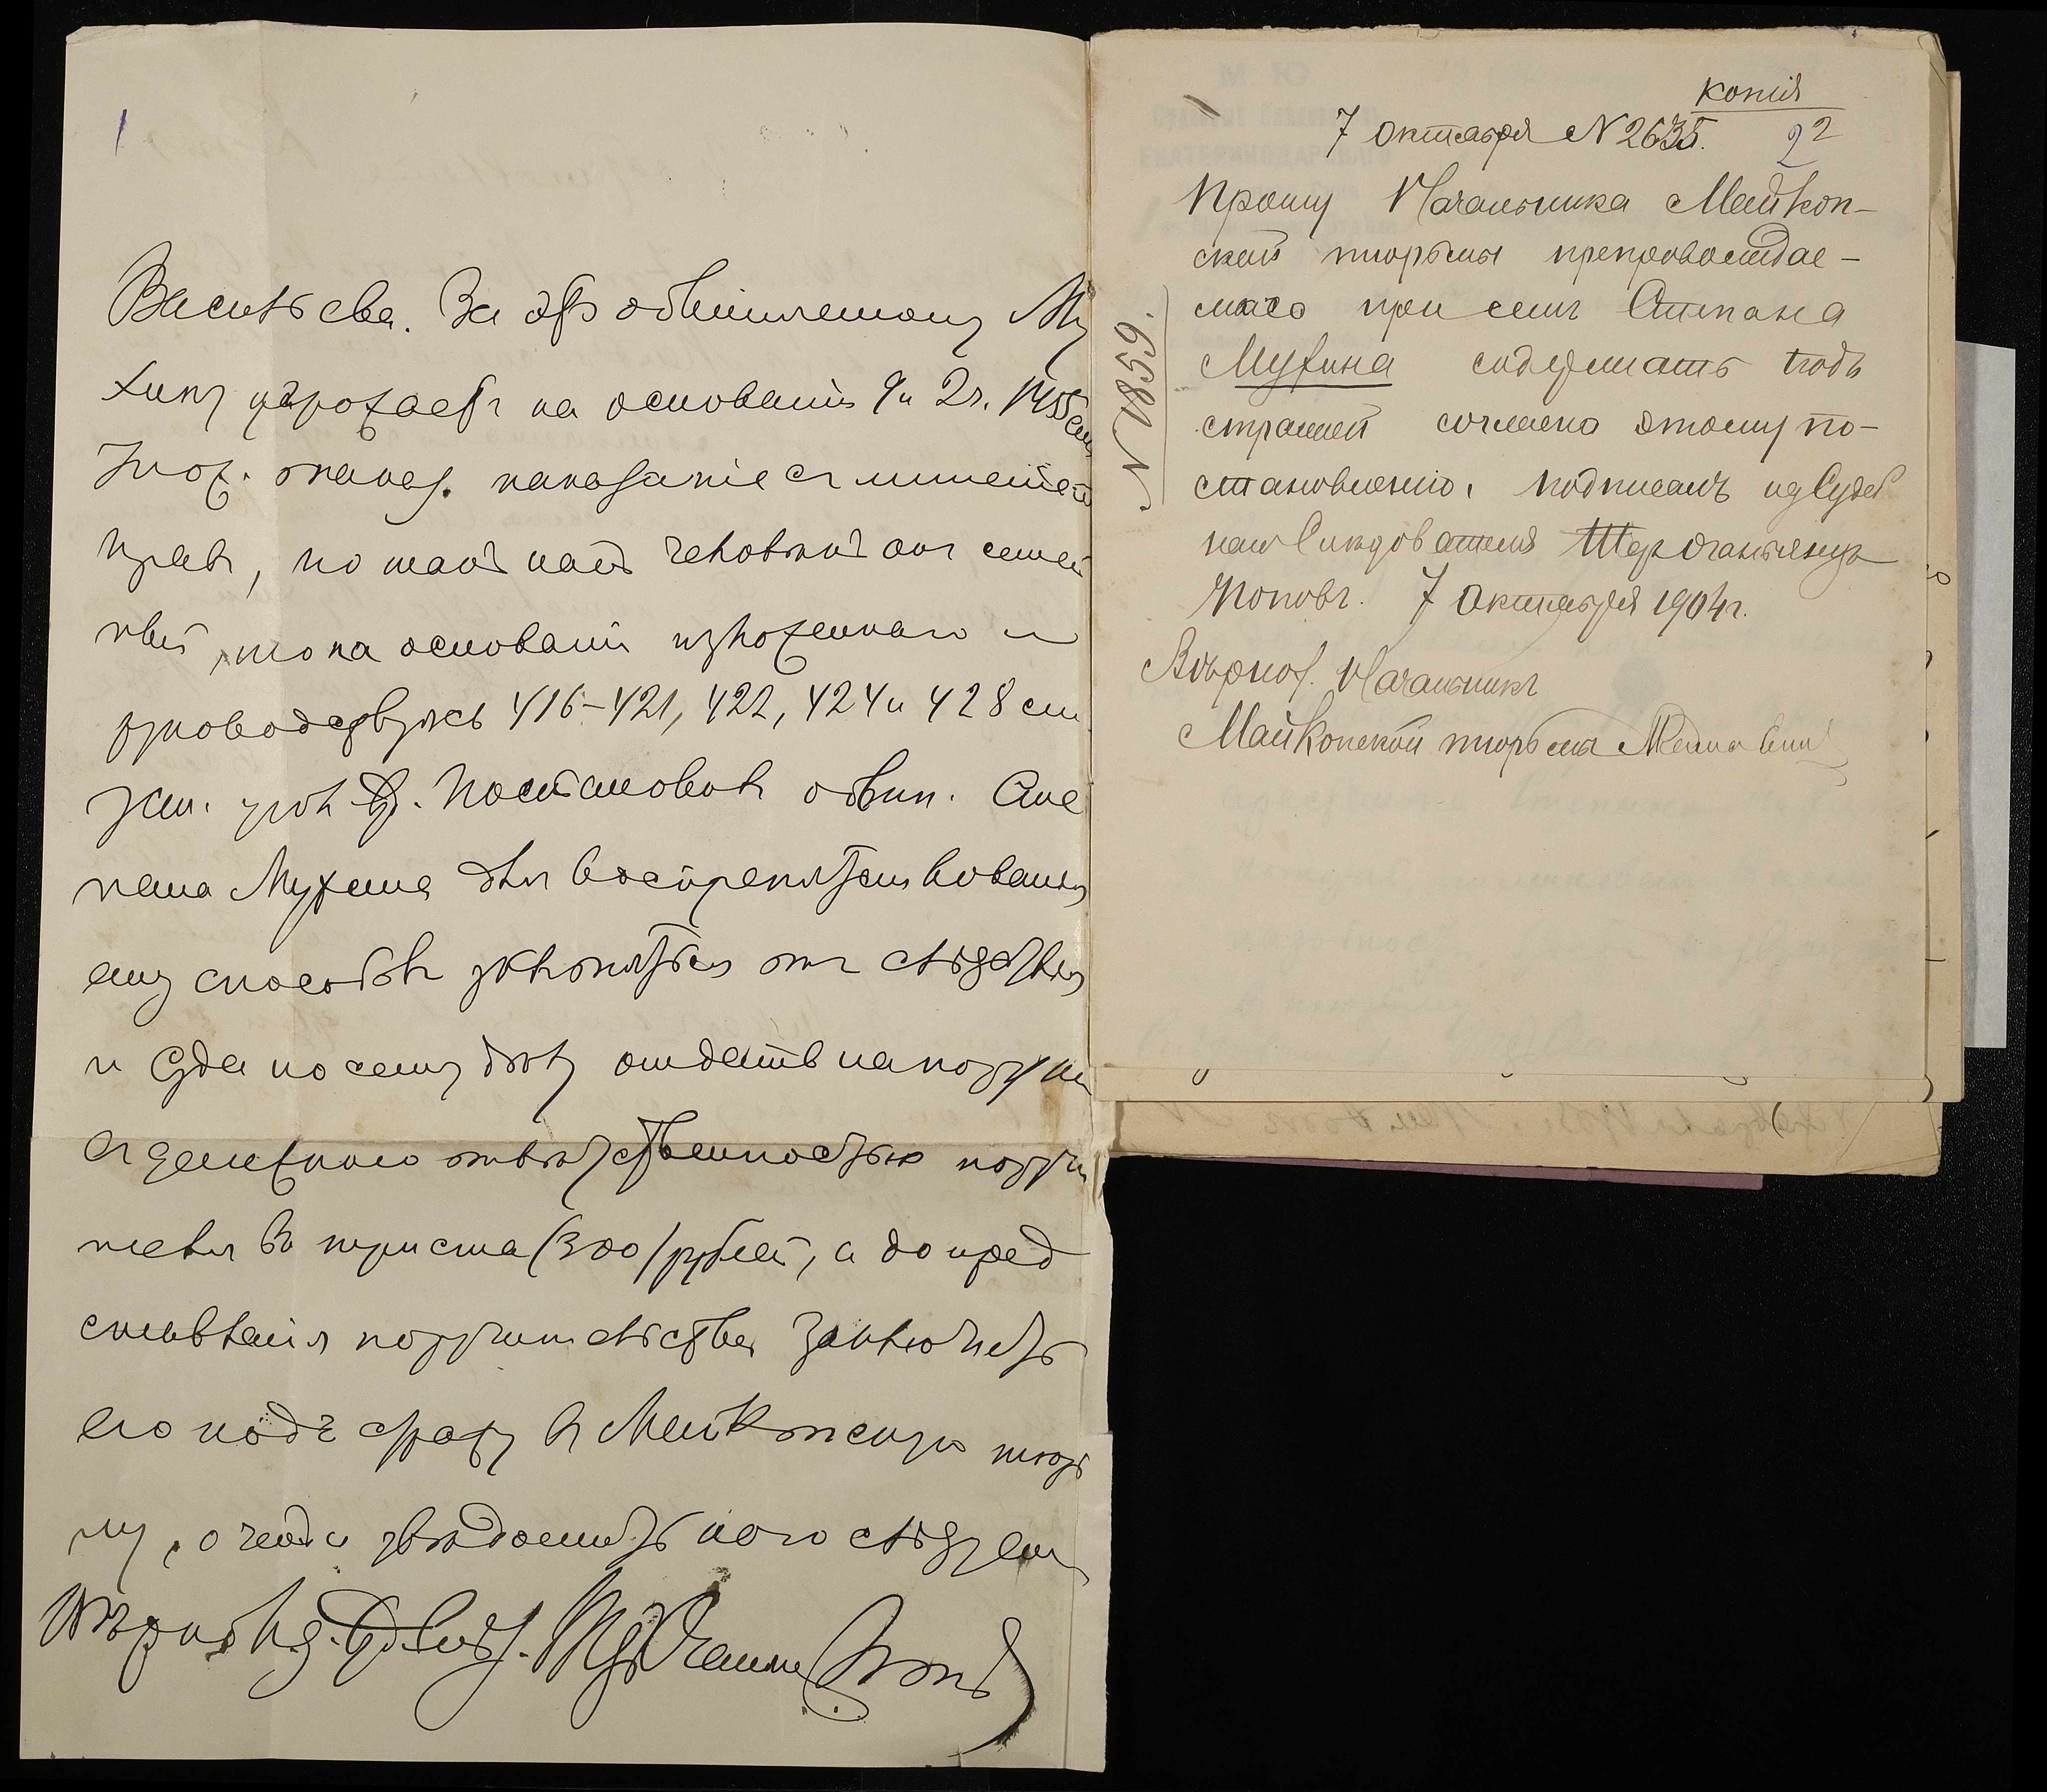 Васильева. За это обвиняемому Му
хину угрожаетъ на основаніи 9 и 2 ч. 1455 ст
Улож. о наказ. наказаніе съ лишеніем
правъ, но такъ какъ человѣкъ онъ семей
ный, то на основаніи изложеннаго и
руководствуясь 416–421, 422, 424 и 428 ст
уст. угол. суд. Постановилъ обвин. Сте
пана Мухина для воспрепятствованія
ему способовъ уклоняться отъ слѣдствія
и Суда по сему дѣлу отдать на поруки
съ денежною отвѣтственностью поручи
телей въ триста (300) рублей, а до пред
ставленія поручительства заключить
его подъ стражу въ Майкопскую тюрь
му, о чемъ и увѣдомить кого слѣдуетъ
Вѣрно И. д. Суд. Слѣд.
копія
7 октября № 2635.
22
Прошу Начальника Майкоп-
ской тюрьмы препровождае-
маго при семъ Степана
Мухина содержать подъ
стражей согласно этому по-
становленію. подписалъ ид Судеб
наго Слѣдователя Терогановянцъ
Поповъ. 7 Октября 1904 г.
Вѣрно. Начальникъ
Майкопской тюрьмы
№ 1859.